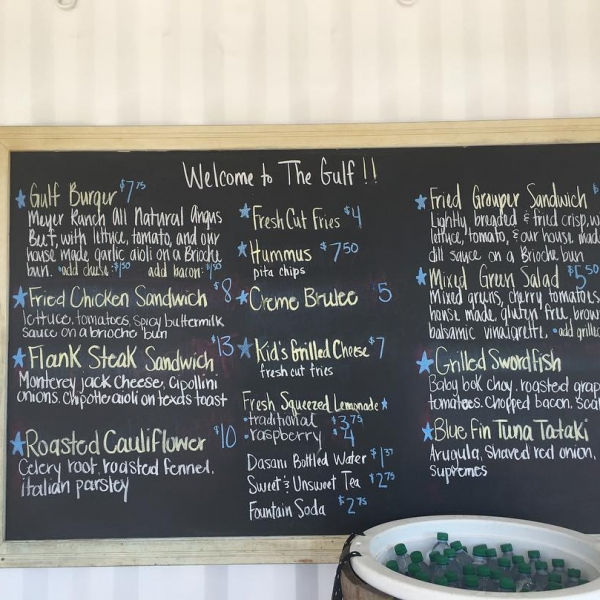 Welcome to The Gulf !!
Gulf Burger $7.75
Meyer Ranch All Natural Angus
Beef, with lettuce, tomato, and our
house made garlic aioli on a Brioche
bun. *add cheese: $1.50 add bacon: $1.50
Fried Chicken Sandwich $8
lettuce, tomatoes, spicy buttermilk
sauce on a brioche bun
Flank Steak Sandwich $13
Monterey jack cheese, cipollini
onions, chipotle aioli on texas toast
Roasted Cauliflower $10
Celery root, roasted fennel,
italian parsley
Fresh Cut Fries $4
Hummus $7.50
pita chips
Creme Brulee $5
Kid's Grilled Cheese $7
fresh cut fries
Fresh Squeezed Lemonade
•traditional $3.75
•raspberry $4
Dasani Bottled Water
Sweet & Unsweet Tea $2.75
Fountain Soda $2.75
Fried Grouper Sandwich $
Lightly breaded & fried crisp, w
lettuce, tomato, & our house mad
dill sauce on a Brioche bun
Mixed Green Salad $5.50
Mixed greens, cherry tomatoes
house made, gluten free, brow
balsamic vinaigrette. *add grille
Grilled Swordfish
Baby bok choy, roasted grap
tomatoes, chopped bacon,
Blue Fin Tuna Tataki
Arugula, shaved red onion,
supremes